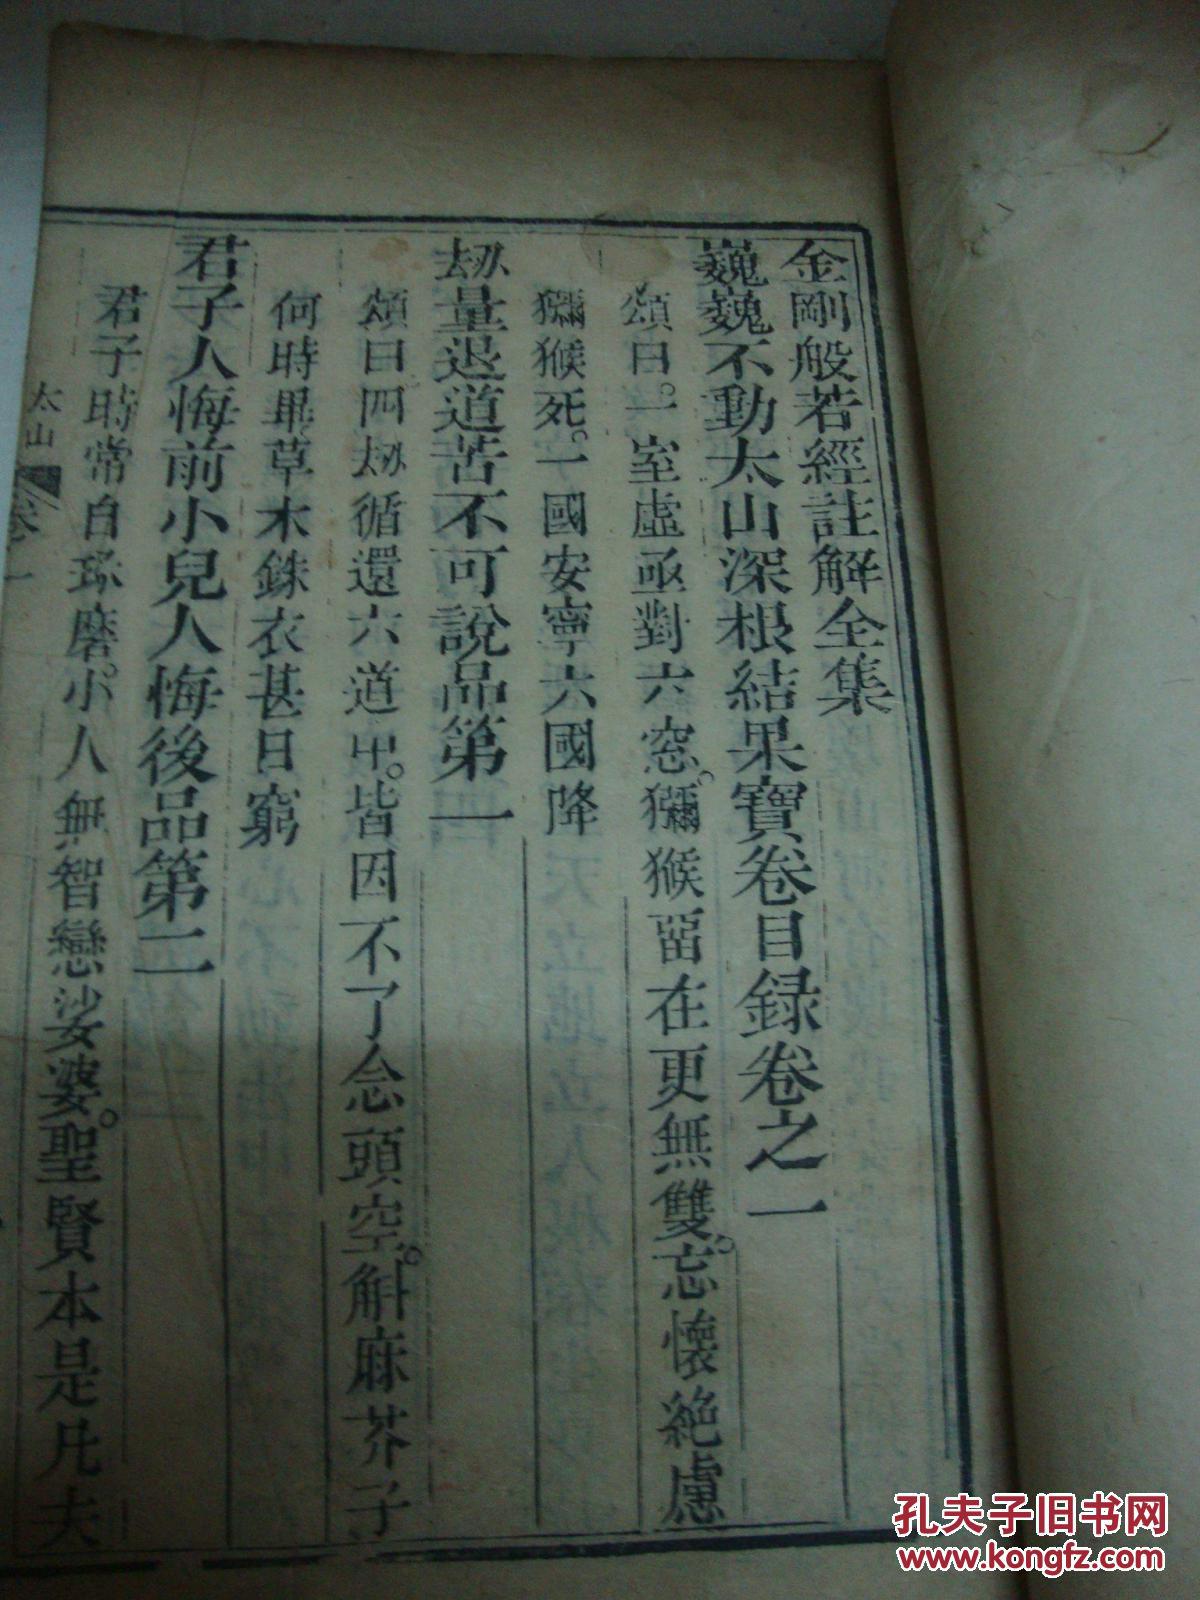 金剛般若經註解全集
巍巍不動太山深根結果寶卷目録卷之一
頌曰。一室虛亟對六窓。獼猴畱在更無雙。忘懷絶慮
獼猴死。一國安寧六國降
刼量退道苦不可說品第一
頌曰四刼循還六道中。皆因不了念頭空。斛麻芥子
何時畢草木銖衣甚日窮
君子人悔前小兒人悔後品第二
君子時常自琢磨。小人無智戀娑婆。聖賢本是凡夫
太山 卷一
孔夫子旧书网
www.kongfz.com